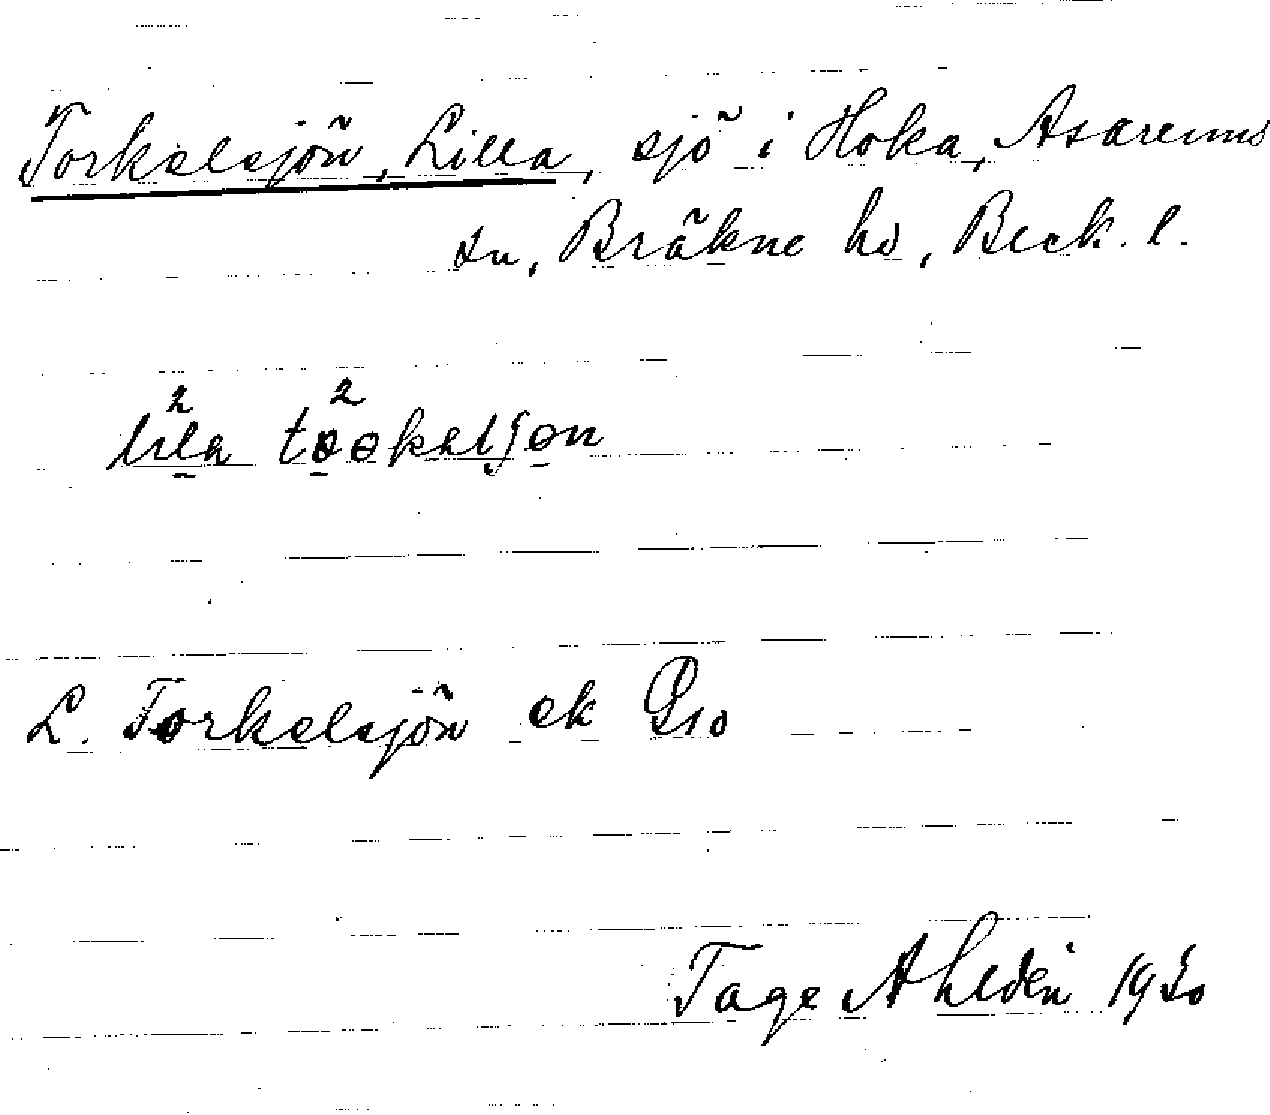 Torkelsjön, Lilla, sjö i Hoka, Asarums
sn, Bräkne hd, Blek. l.
L. Torkelsjön ek
Tage Ahldén 1930